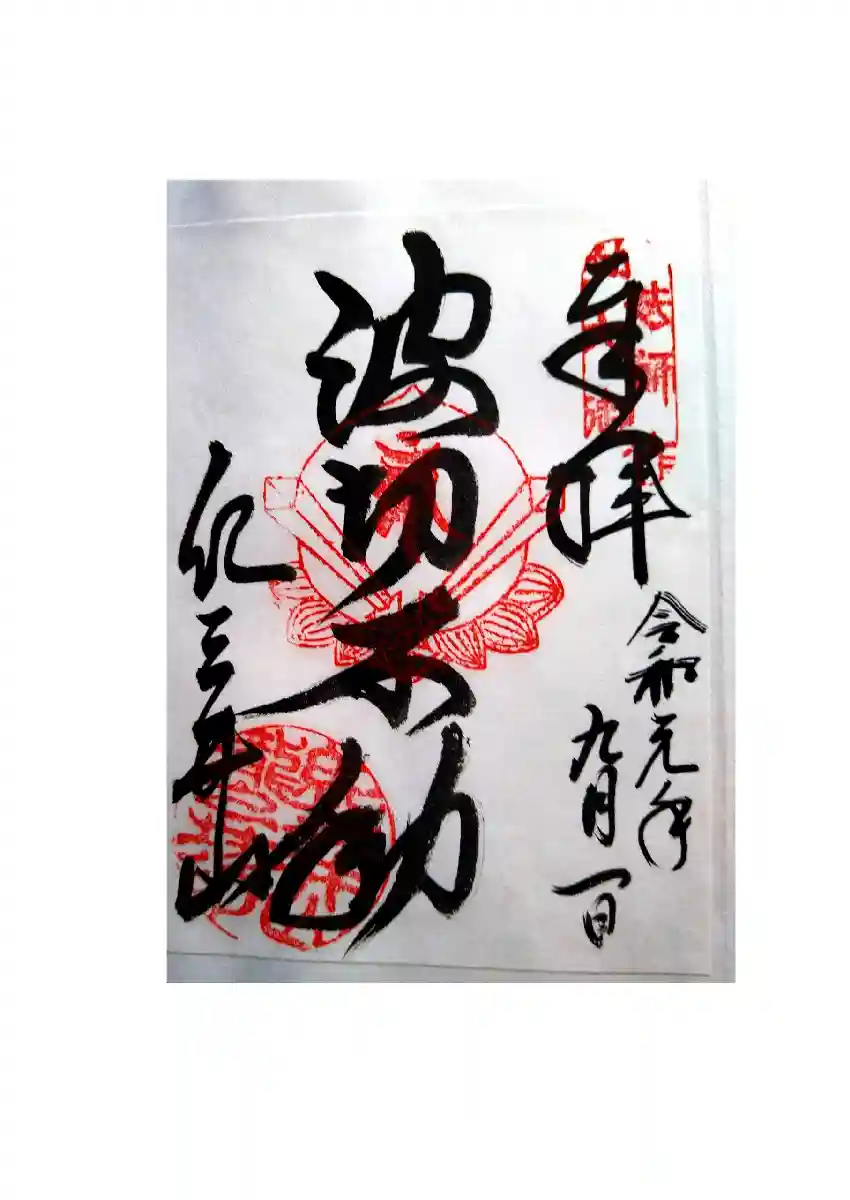 奉拝
令和元年
九月一日
波切不動
紀三井山